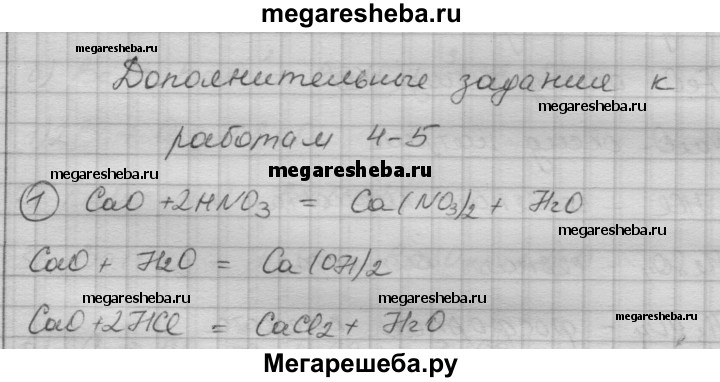 megaresheba.ru
megaresheba.ru
Дополнительные задания к
megaresheba.ru
работам 4-5
megaresheba.ru
megaresheba.ru
① CaO + 2HNO3 = Ca(NO3)2 + H2O
megaresheba.ru
CaO + H2O = Ca(OH)2
megaresheba.ru
megaresheba.ru
CaO + 2HCl = CaCl2 + H2O
megaresheba.ru
Мегарешеба.ру